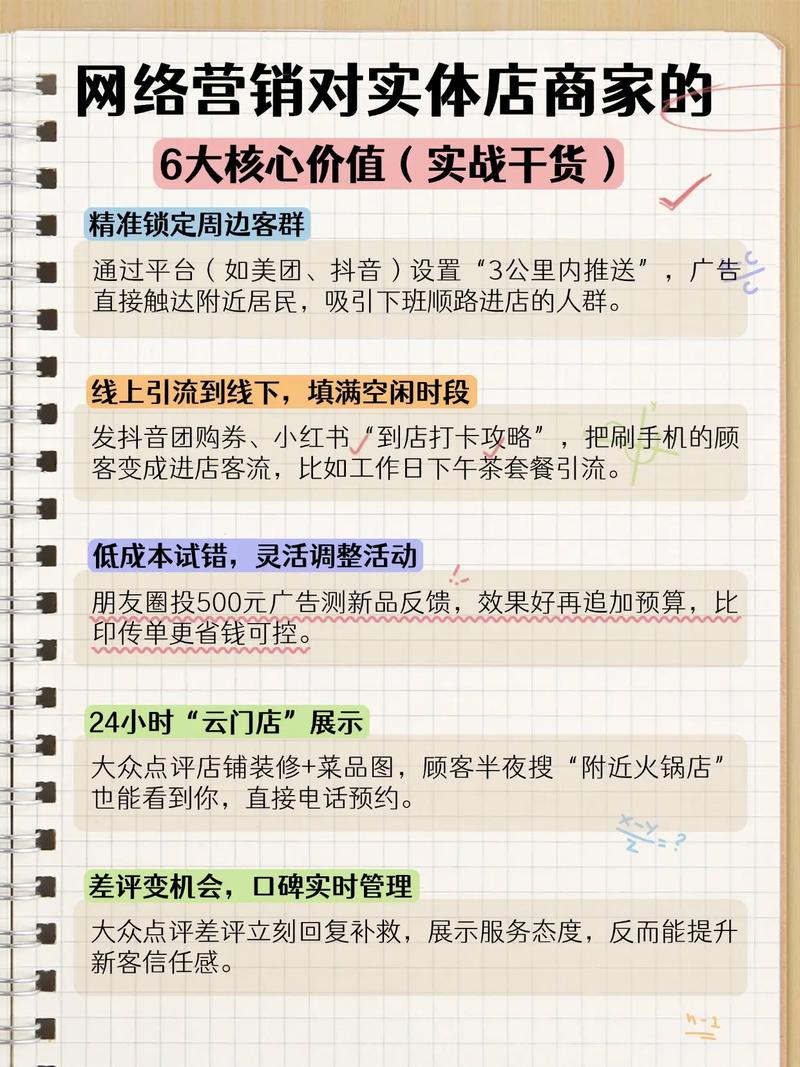 网络营销对实体店商家的
6大核心价值（实战干货）
精准锁定周边客群
通过平台（如美团、抖音）设置“3公里内推送”，广告
直接触达附近居民，吸引下班顺路进店的人群。
线上引流到线下，填满空闲时段
发抖音团购券、小红书“到店打卡攻略”，把刷手机的顾
客变成进店客流，比如工作日下午茶套餐引流。
低成本试错，灵活调整活动
朋友圈投500元广告测新品反馈，效果好再追加预算，比
印传单更省钱可控。
24小时“云门店”展示
大众点评店铺装修+菜品图，顾客半夜搜“附近火锅店”
也能看到你，直接电话预约。
x-y
z =?
差评变机会，口碑实时管理
大众点评差评立刻回复补救，展示服务态度，反而能提升
新客信任感。
n-1